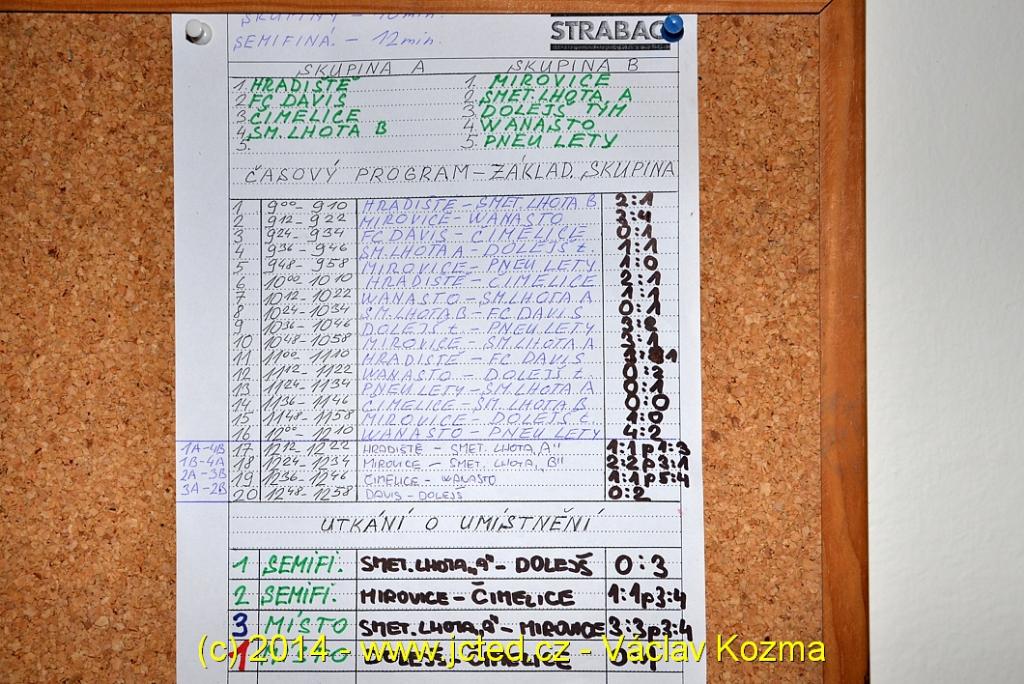 SEMIFINÁ. - 12min.
STRABAG
SKUPINA A SKUPINA B
1. HRADIŠTĚ 1. MIROVICE
2. FC DAVIS 2. SMET. LHOTA A
3. ČIMELICE 3. DOLEJŠ TÝM
4. SM. LHOTA B 4. WANASTO
5. 5. PNEU LETY
ČASOVÝ PROGRAM - ZÁKLAD. SKUPINA
1 9⁰⁰ - 9¹⁰ HRADIŠTĚ - SMET. LHOTA B 2:1
2 9¹² - 9²² MIROVICE - WANASTO 3:4
3 9²⁴ - 9³⁴ FC DAVIS - ČIMELICE 0:1
4 9³⁶ - 9⁴⁶ SM. LHOTA A - DOLEJŠ t. 1:1
5 9⁴⁸ - 9⁵⁸ MIROVICE - PNEU LETY 1:0
6 10⁰⁰ - 10¹⁰ HRADIŠTĚ - ČIMELICE 2:1
7 10¹² - 10²² WANASTO - SM. LHOTA A 1:1
8 10²⁴ - 10³⁴ SM. LHOTA B - FC DAVIS 0:1
9 10³⁶ - 10⁴⁶ DOLEJŠ t. - PNEU LETY
10 10⁴⁸ - 10⁵⁸ MIROVICE - SM. LHOTA A 3:1
11 11⁰⁰ - 11¹⁰ HRADIŠTĚ - FC DAVIS
12 11¹² - 11²² WANASTO - DOLEJŠ t. 0:2
13 11²⁴ - 11³⁴ PNEU LETY - SM. LHOTA A 0:1
14 11³⁶ - 11⁴⁶ ČIMELICE - SM. LHOTA B 0:0
15 11⁴⁸ - 11⁵⁸ MIROVICE - DOLEJŠ t. 1:0
16 12⁰⁰ - 12¹⁰ WANASTO - PNEU LETY 4:2
1A-4B 17 12¹² - 12²² HRADIŠTĚ - SMET. LHOTA „A" 1:1p1:3
1B-4A 18 12²⁴ - 12³⁴ MIROVICE - SMET. LHOTA „B" 2:2p3:1
2A-3B 19 12³⁶ - 12⁴⁶ ČIMELICE - WANASTO 1:1p5:4
3A-2B 20 12⁴⁸ - 12⁵⁸ DAVIS - DOLEJŠ 0:2
UTKÁNÍ O UMÍSTNĚNÍ
1 SEMIFI. SMET. LHOTA „A" - DOLEJŠ 0:3
2 SEMIFI. MIROVICE - ČIMELICE 1:1p3:4
3 MÍSTO SMET. LHOTA „A" - MIROVICE 3:3p3:4
1 MÍSTO DOLEJŠ - ČIMELICE
(c) 2014 - www.jcted.cz - Václav Kozma